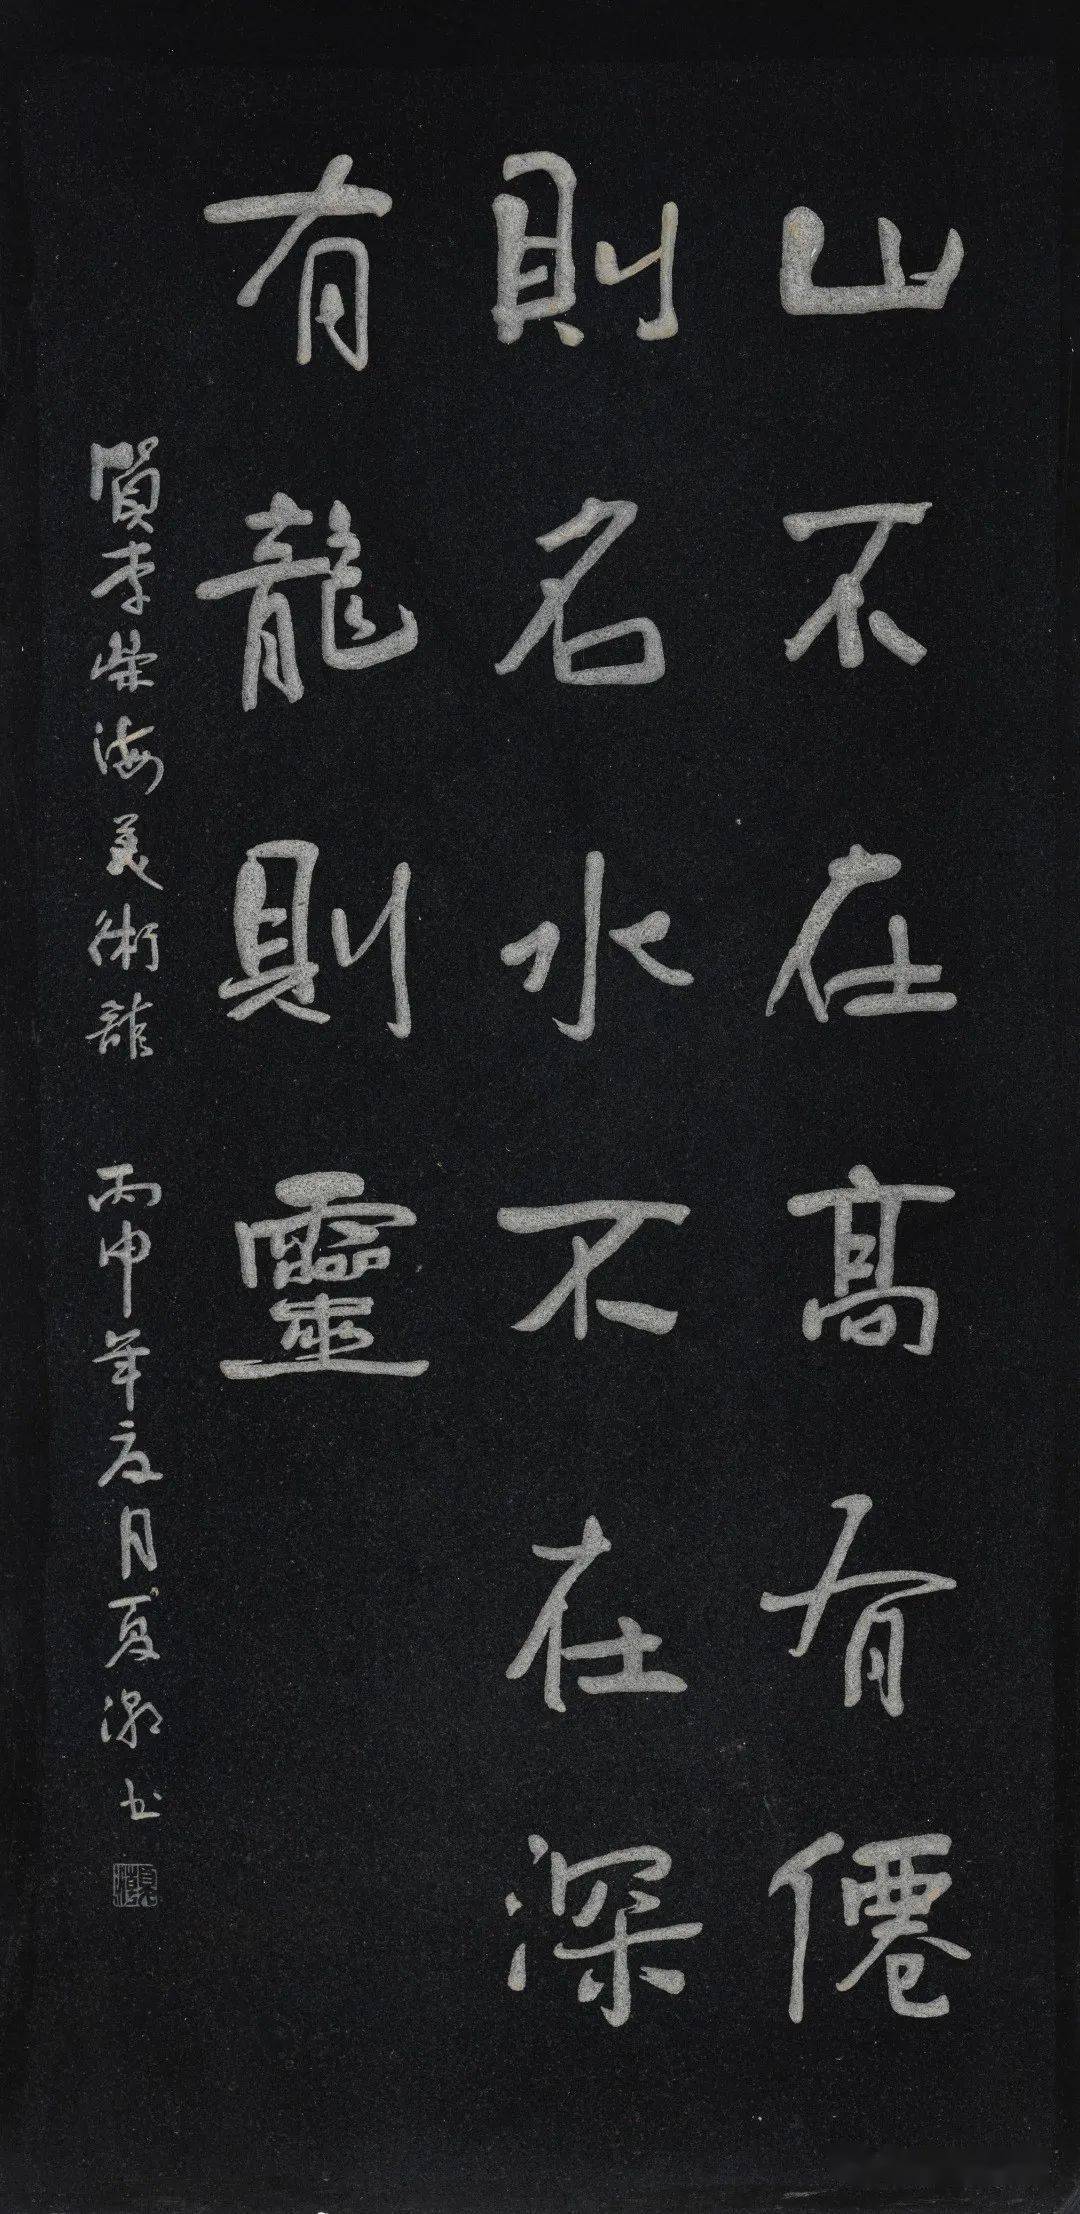 山不在高有僊
則名水不在深
有龍則靈
賀李榮海美術館 丙申年夏月夏潮书
夏潮